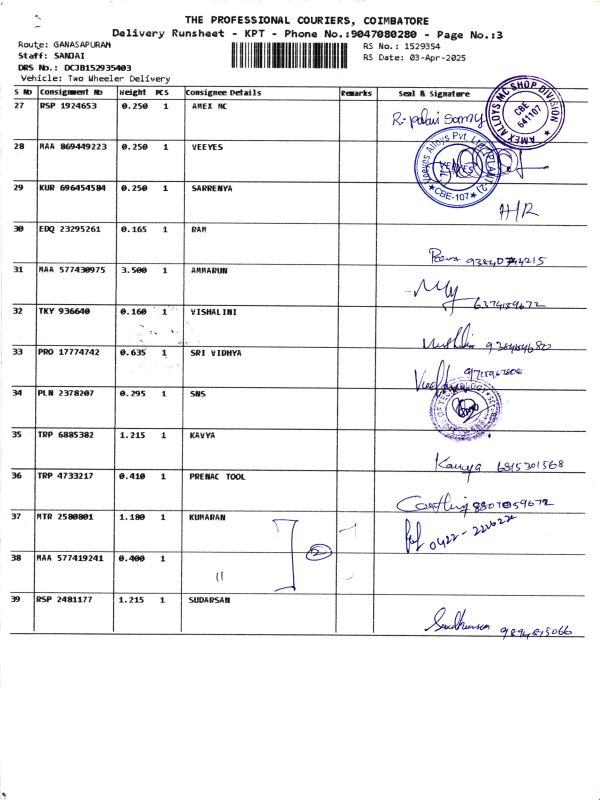 THE PROFESSIONAL COURIERS, COIMBATORE
Delivery Runsheet - KPT - Phone No.:9047080280 - Page No.:3
Route: GANASAPURAM
RS No.: 1529354
Staff: SANJAI
RS Date: 03-Apr-2025
DRS No.: DCJB152935403
Vehicle: Two Wheeler Delivery
S No Consignment No Weight PCS Consignee Details Remarks Seal & Signature
27 RSP 1924653 0.250 1 AMEX MC
AMEX ALLOYS MC SHOP DIVISION CBE 641107
28 MAA 869449223 0.250 1 VEEYES
Veeyes Alloys Pvt. Ltd. VEEYES CBE-107
29 KUR 696454584 0.250 1 SARRENYA
H/R
30 EDQ 23295261 0.165 1 RAM
31 MAA 577430975 3.500 1 AMMARUN
6374189672
32 TKY 936640 0.160 1 VISHALINI
33 PRO 17774742 0.635 1 SRI VIDHYA
34 PLN 2378207 0.295 1 SNS
35 TRP 6885382 1.215 1 KAVYA
Kavya 6815301568
36 TRP 4733217 0.410 1 PRENAC TOOL
37 MTR 2580801 1.180 1 KUMARAN
2
38 MAA 577419241 0.400 1 "
39 RSP 2481177 1.215 1 SUDARSAN
9894815066